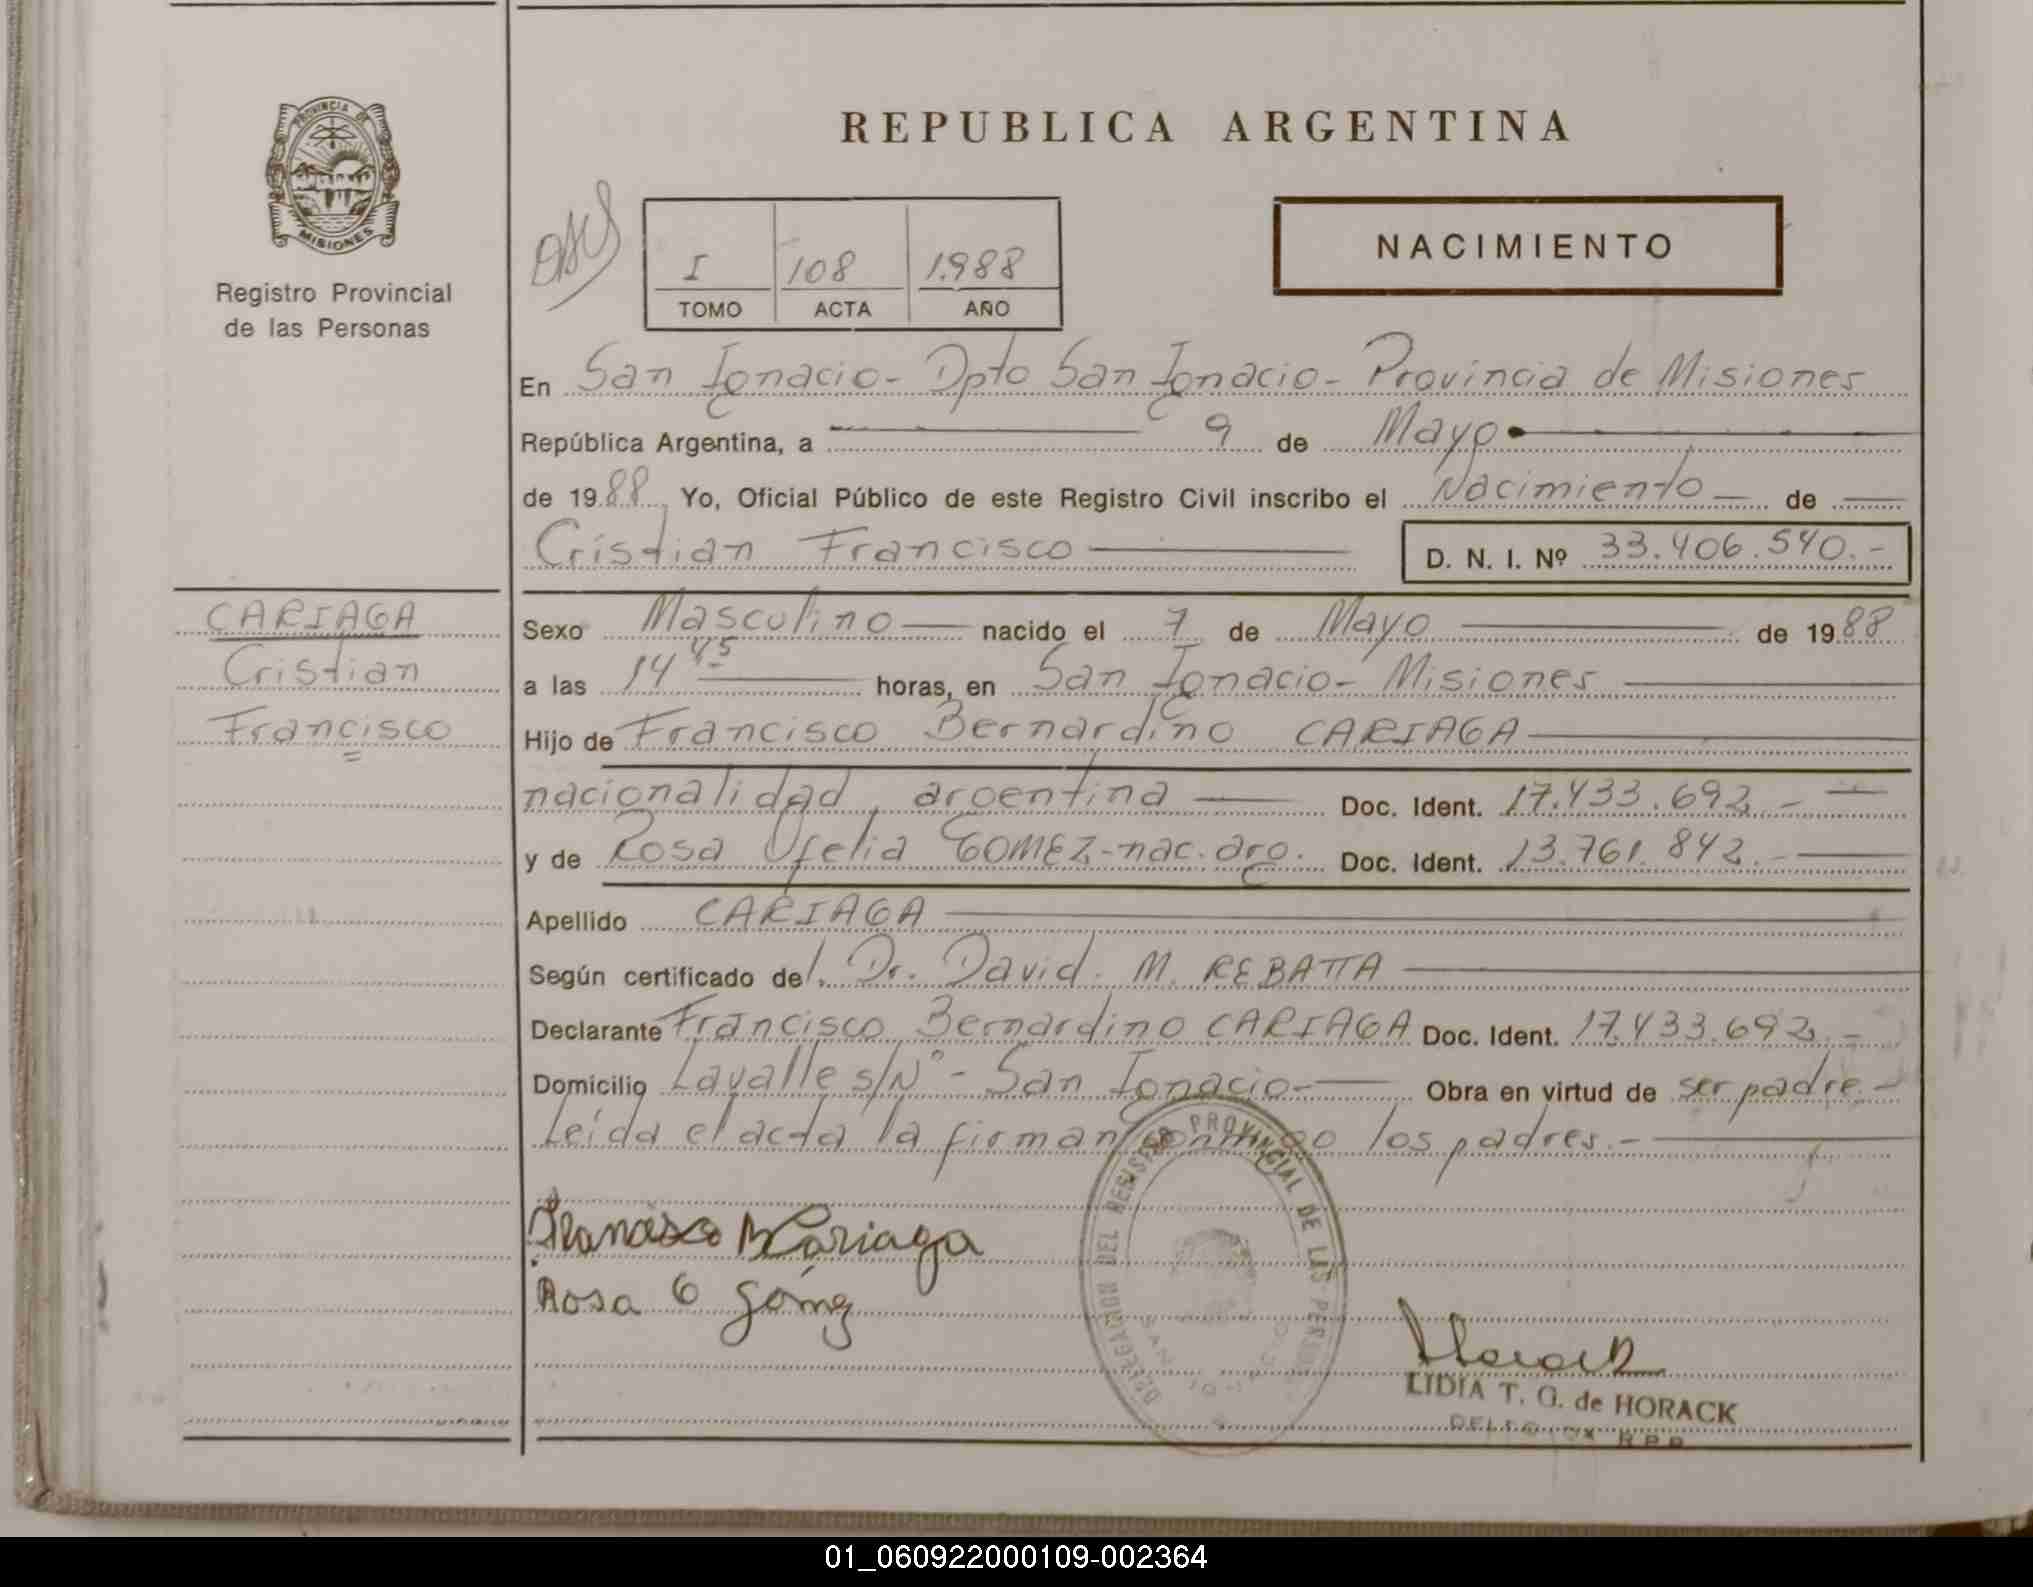 REPUBLICA ARGENTINA
PROVINCIA DE
MISIONES
Registro Provincial
de las Personas
I 108 1.988
TOMO ACTA AÑO
NACIMIENTO
En San Ignacio - Dpto San Ignacio - Provincia de Misiones
República Argentina, a 9 de Mayo
de 1988, Yo, Oficial Público de este Registro Civil inscribo el Nacimiento de
Cristian Francisco D. N. I. Nº 33.406.540.-
CARIAGA
Cristian
Francisco
Sexo Masculino nacido el 7 de Mayo de 1988
a las 14 45 horas, en San Ignacio - Misiones
Hijo de Francisco Bernardino CARIAGA
nacionalidad argentina Doc. Ident. 17.433.692.-
y de Rosa Ofelia GOMEZ - nac. arg. Doc. Ident. 13.761.842.-
Apellido CARIAGA
Según certificado del. Dr. David. M. REBATTA
Declarante Francisco Bernardino CARIAGA Doc. Ident. 17.433.692.-
Domicilio Lavalle s/Nº - San Ignacio - Obra en virtud de ser padre.-
Leída el acta la firman conmigo los padres.-
Francisco B Cariaga
Rosa O Gómez
DELEGACION DEL REGISTRO PROVINCIAL DE LAS PERSONAS
SAN IGNACIO
Horack
LIDIA T. G. de HORACK
R P P
01_060922000109-002364